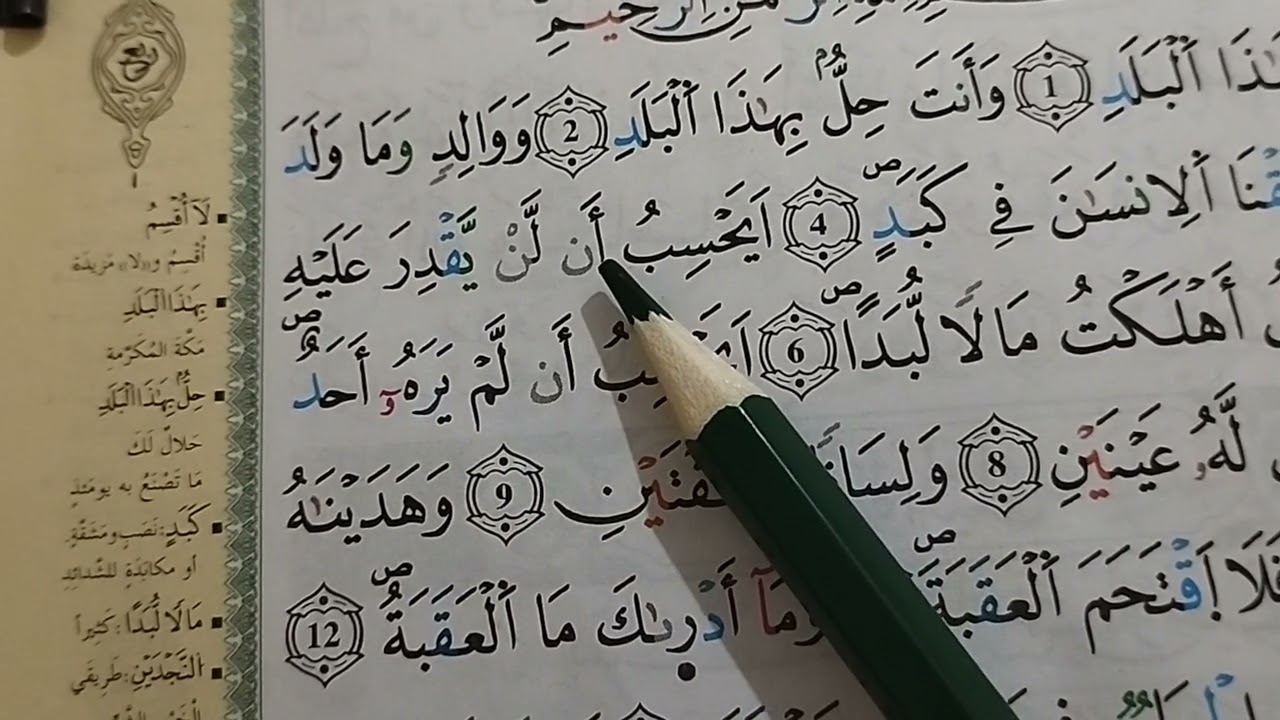 اَ۬لرَّحِيمِ
اَ۬لْبَلَدِ 1 وَأَنتَ حِلٌّۢ بِهَٰذَا اَ۬لْبَلَدِ 2 وَوَالِدٖ وَمَا وَلَدَ
اَ۬لِانسَٰنَ فِي كَبَدٍ 4 اَيَحْسِبُ أَن لَّنْ يَّقْدِرَ عَلَيْهِ
أَهْلَكْتُ مَالًا لُّبَدًا 6 أَن لَّمْ يَرَهُۥٓ أَحَدٌ
لَّهُۥ عَيْنَيْنِ 8 وَهَدَيْنَٰهُ 9
فَلَا اَ۪قْتَحَمَ اَ۬لْعَقَبَةَ وَمَآ أَدْر۪ىٰكَ مَا اَ۬لْعَقَبَةُ 12
ربع
لَآ أُقْسِمُ
أُقْسِمُ و«لا» مَزيدَة
بِهَٰذَا اَ۬لْبَلَدِ
مَكّةَ المُكَرّمةِ
حِلٌّۢ بِهَٰذَا اَ۬لْبَلَدِ
حَلالٌ لَكَ
مَا تَصْنَعُ به يومَئذٍ
كَبَدٍ: نَصَبٍ ومَشَقّةٍ
أو مكابَدَةٍ للشّدائِدِ
مَالًا لُّبَدًا: كَثيراً
اَ۬لنَّجْدَيْنِ: طَريقَي